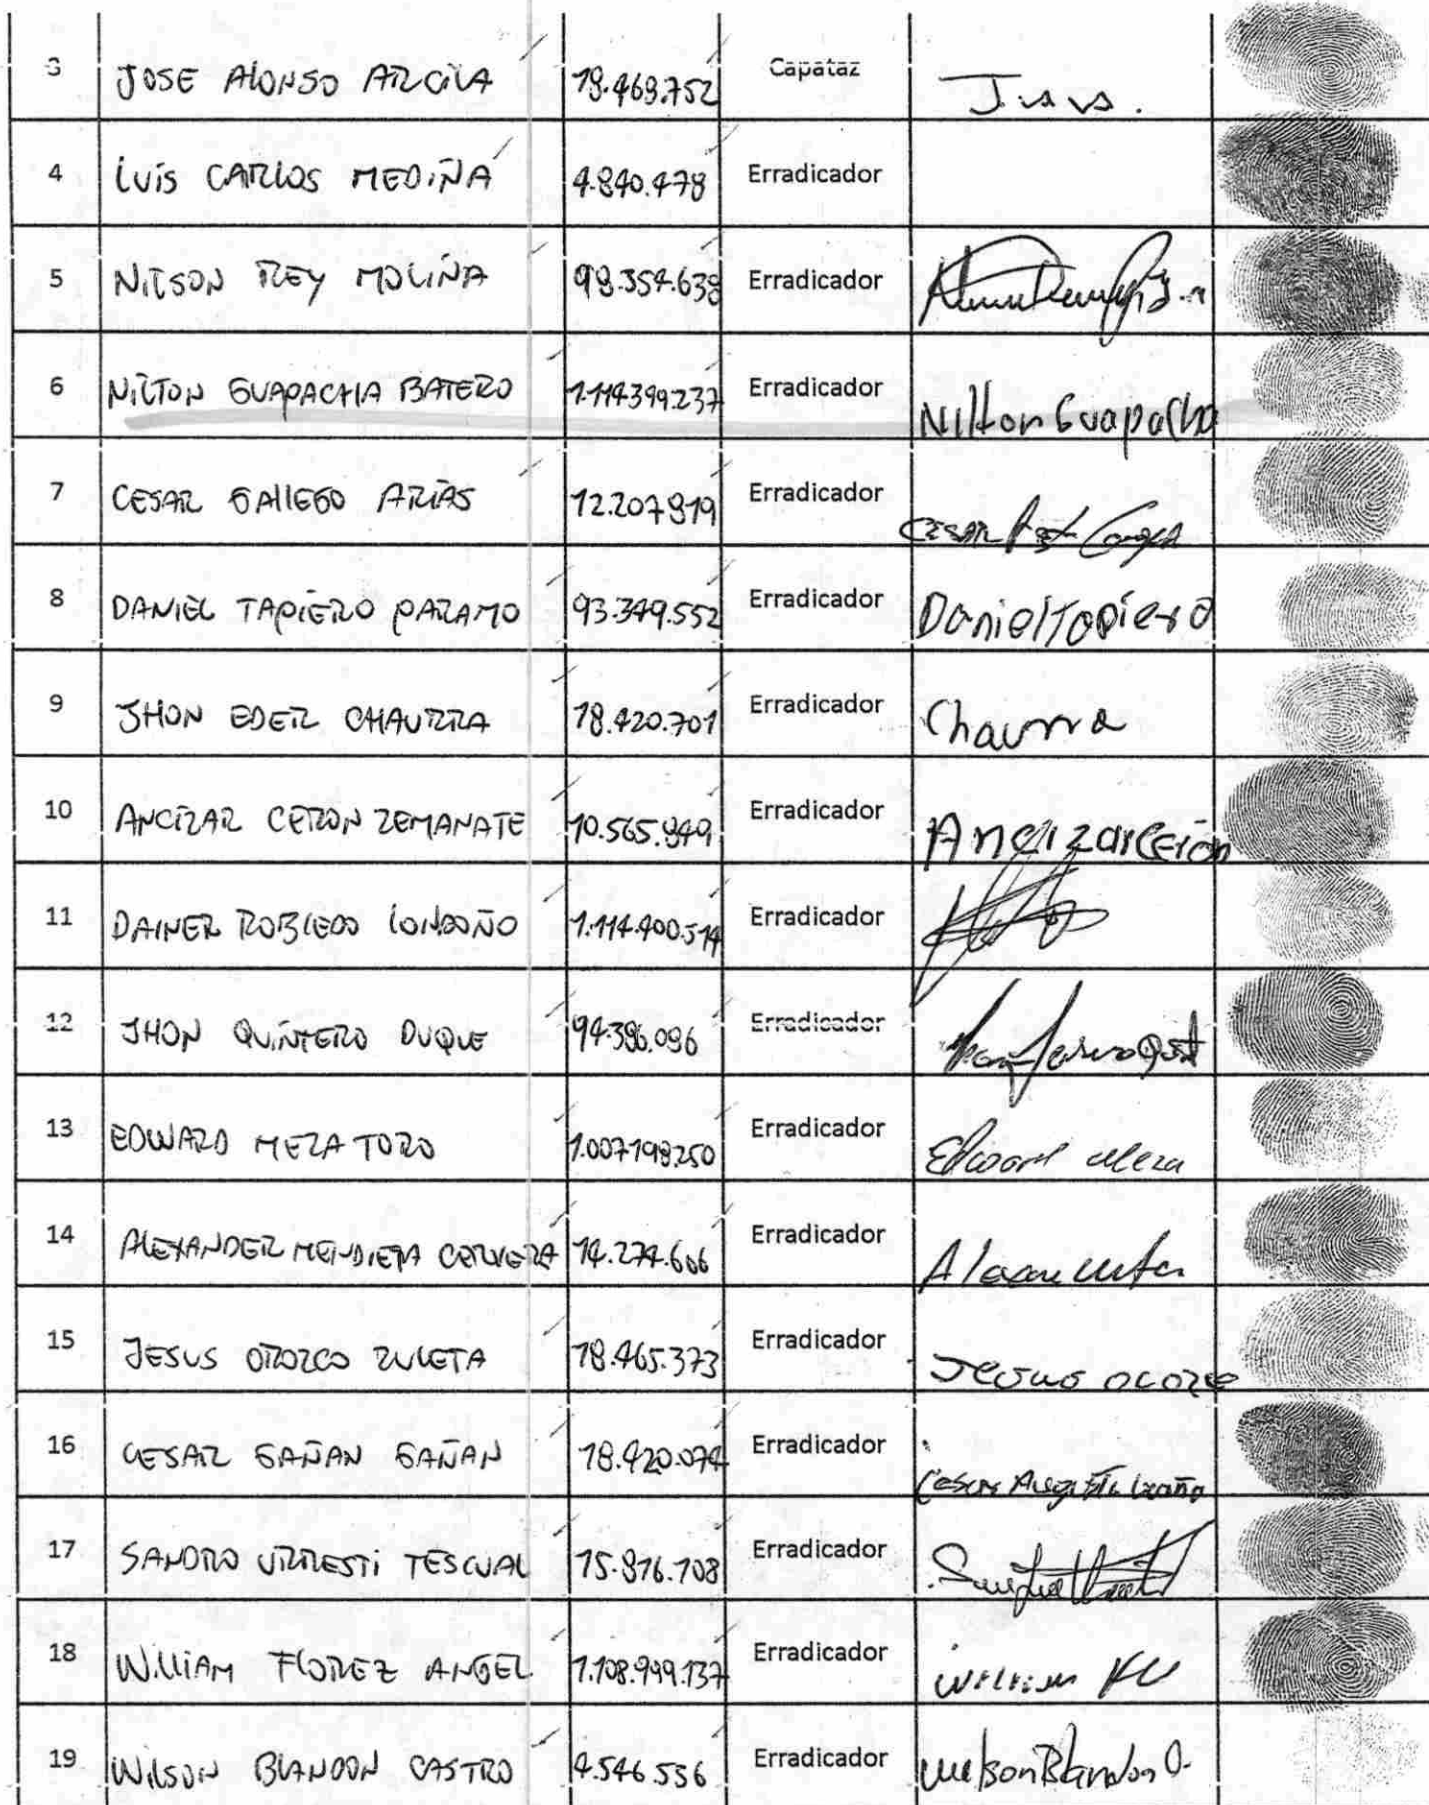 3 JOSE ALONSO ARCILA 18.469.752 Capataz
4 LUIS CARLOS MEDIÑA 4.840.478 Erradicador
5 NILSON REY MOLIÑA 98.354.638 Erradicador
6 NILTON GUAPACHA BATERO 1.114.399.237 Erradicador Nilton Guapacha
7 CESAR GALLEGO ARIAS 12.207.819 Erradicador
8 DANIEL TAPIERO PARAMO 93.349.552 Erradicador Daniel Tapiero
9 JHON EDER CHAURRA 18.420.701 Erradicador Chaurra
10 ANCIZAR CERON ZEMANATE 10.565.849 Erradicador Ancizar Ceron
11 DAINER ROBLEDO LONDOÑO 1.114.400.514 Erradicador
12 JHON QUINTERO DUQUE 94.386.096 Erradicador
13 EDWARD MEZA TORO 1.007.198.250 Erradicador Edward Meza
14 ALEXANDER MENDIETA CERVERA 14.274.606 Erradicador
15 JESUS OROZCO ZULETA 18.465.373 Erradicador
16 CESAR GAÑAN GAÑAN 18.420.074 Erradicador
17 SANDRO URRESTI TESCUAL 15.876.708 Erradicador
18 WILLIAM FLOREZ ANGEL 1.108.999.137 Erradicador
19 WILSON BLANDON CASTRO 4.546.556 Erradicador Wilson Blandon C.